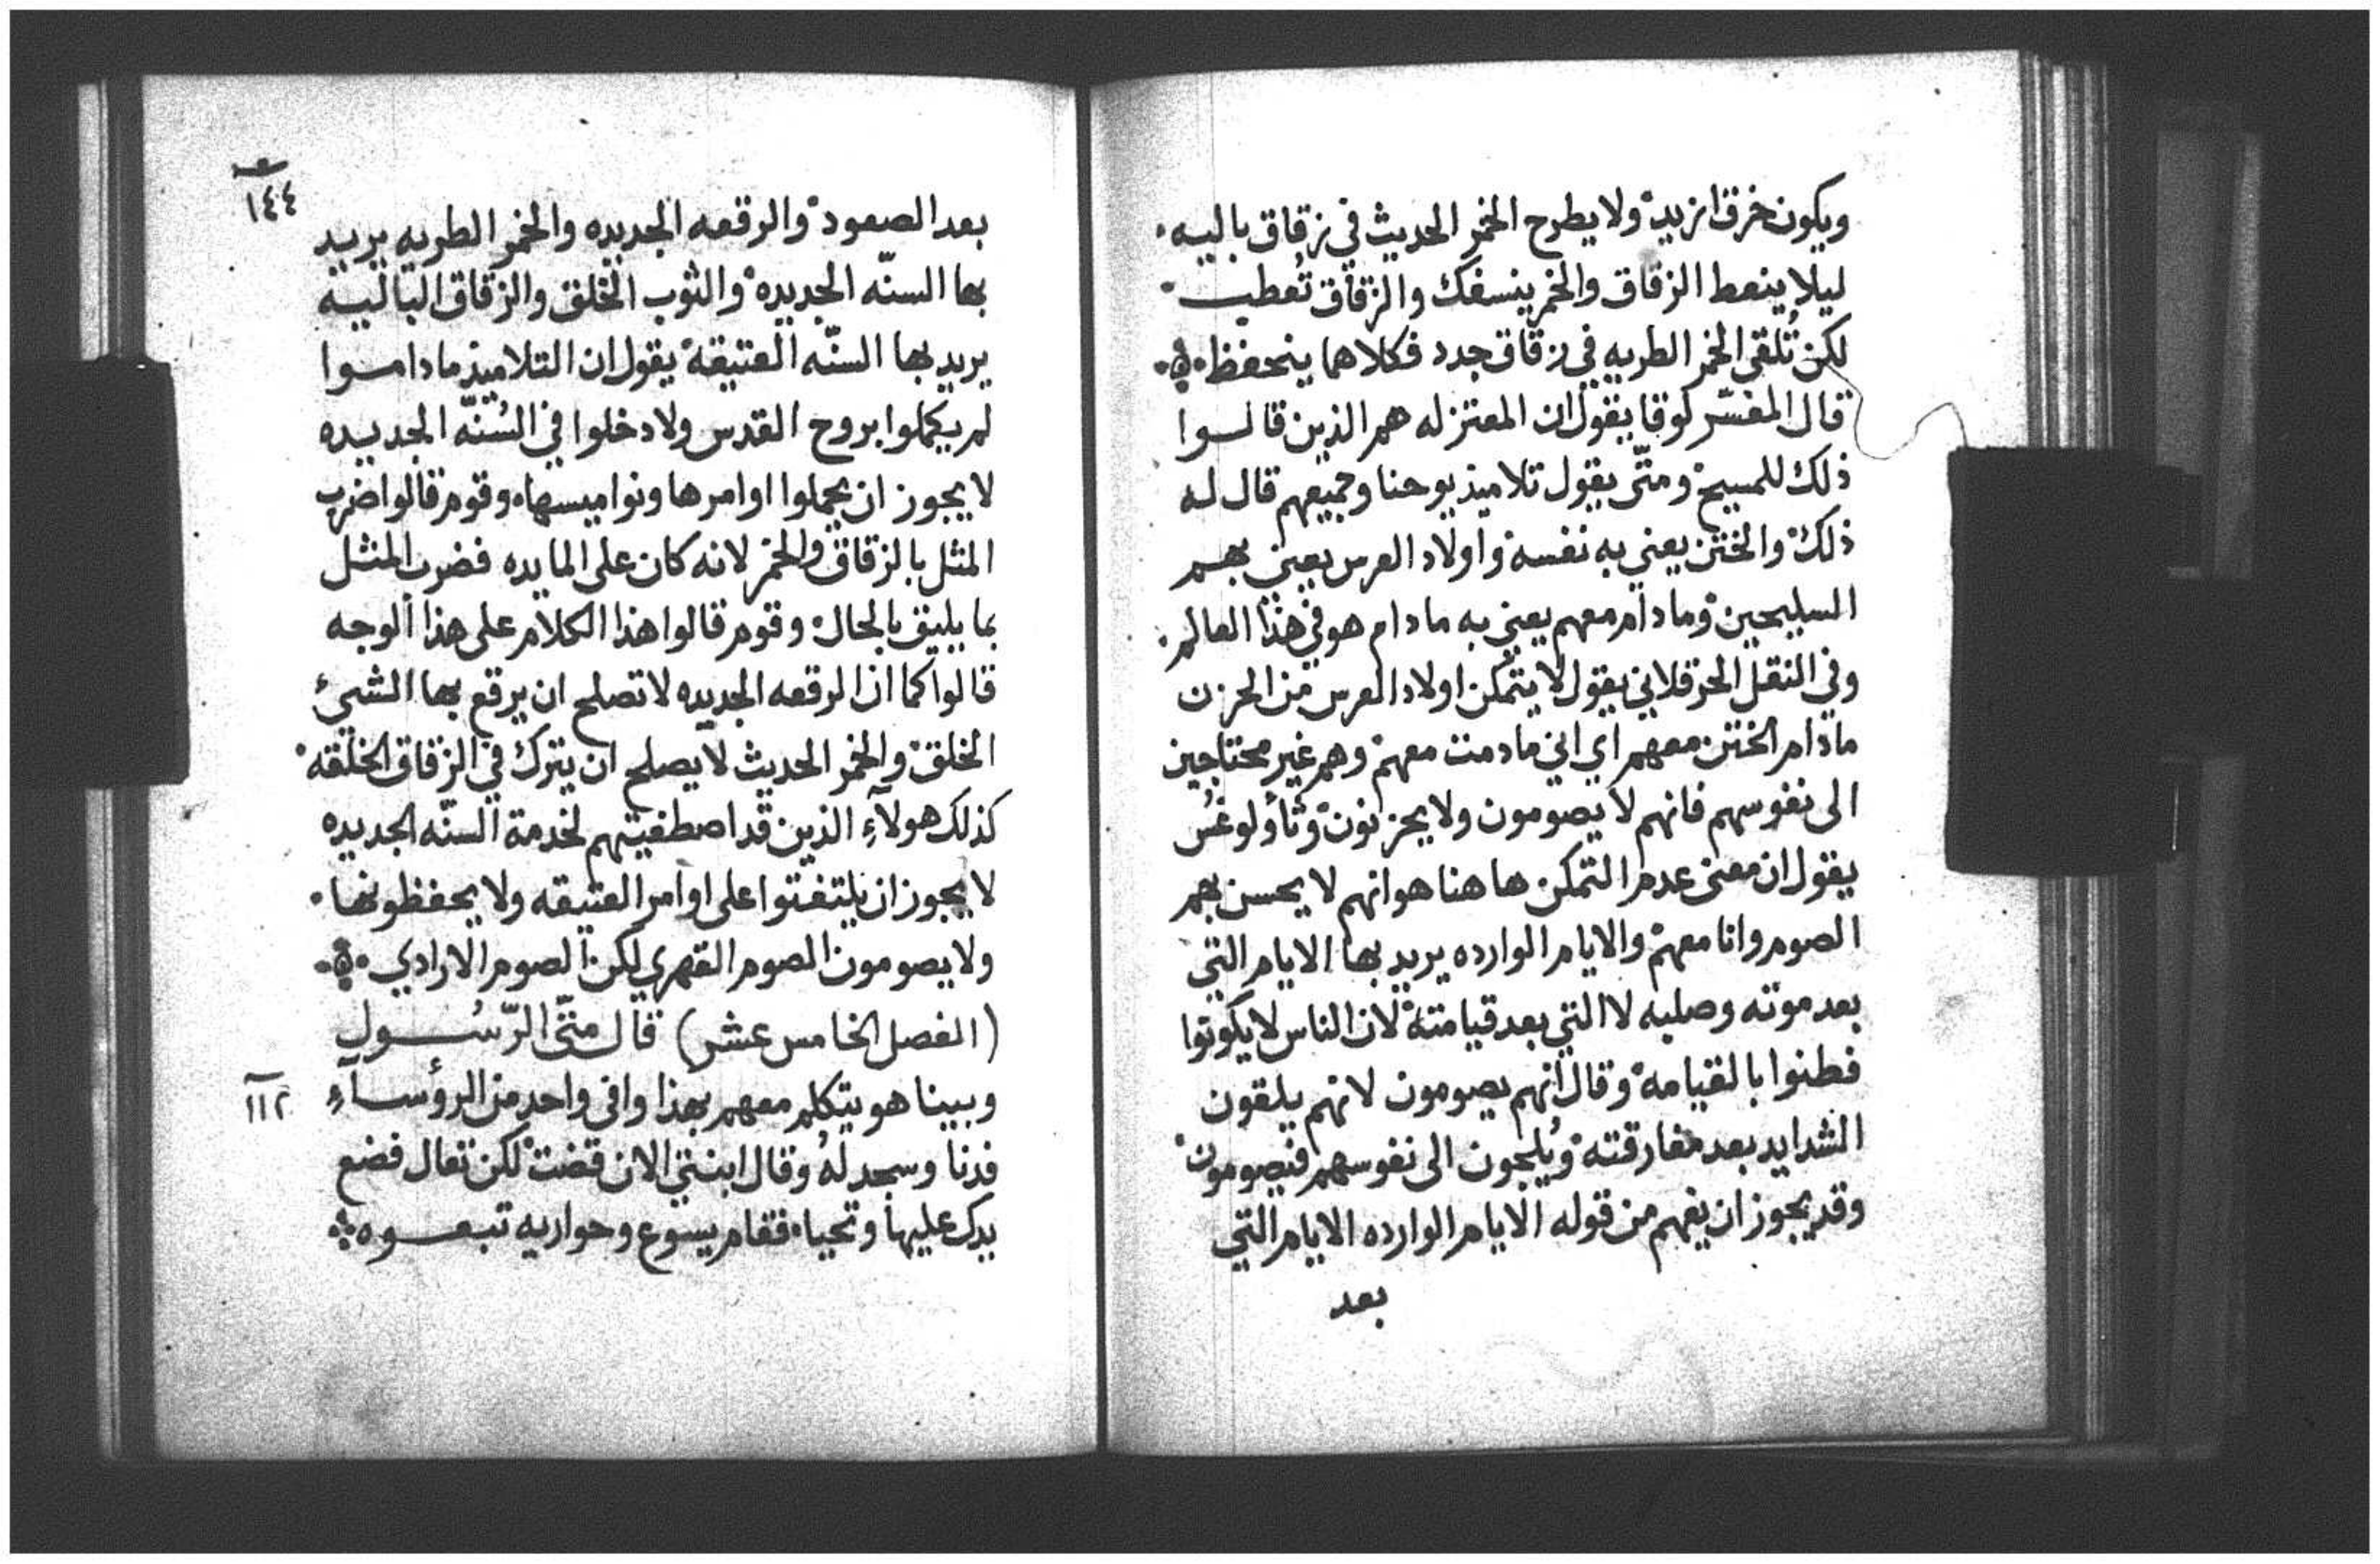 ويكون خرق ازيد ولا يطرح الخمر الحديث في زقاق باليه
ليلا ينعط الزقاق والخمر ينسفك والزقاق تعطب
لكن تُلقى الخمر الطريه في زقاق جدد فكلاهما ينحفظ
قال المفسّر لوقا يقول ان المعتزله هم الذين قالوا
ذلك للمسيح ومتّى يقول تلاميذ يوحنا وجميعهم قال له
ذلك والختن يعني به نفسه واولاد العرس يعني بهم
السليحين وما دام معهم يعني به ما دام هو في هذا العالم
وفي النقل الحرقلاني يقول لا يتمكن اولاد العرس من الحزن
ما دام الختن معهم اي اني ما دمت معهم وهم غير محتاجين
الى نفوسهم فانهم لا يصومون ولا يحزنون وثاولوغس
يقول ان معنى عدم التمكن ها هنا هو انهم لا يحسن بهم
الصوم وانا معهم والايام الوارده يريد بها الايام التي
بعد موته وصلبه لا التي بعد قيامته لان الناس لا يكونوا
فطنوا بالقيامه وقال انهم يصومون لانهم يلقون
الشدايد بعد مفارقته ويُلجون الى نفوسهم فيصومون
وقد يجوز ان يفهم من قوله الايام الوارده الايام التي
بعد
١٤٤
بعد الصعود والرقعه الجديده والخمر الطريه يريد
بها السنّه الجديده والثوب الخلق والزقاق الباليه
يريد بها السنّه العتيقه يقول ان التلاميذ ما داموا
لم يكملوا بروح القدس ولا دخلوا في السُنّه الجديده
لا يجوز ان يحملوا اوامرها ونواميسها وقوم قالوا ضرب
المثل بالزقاق والخمر لانه كان على المايده فضرب المثل
بما يليق بالحال وقوم قالوا هذا الكلام على هذا الوجه
قالوا كما ان الرقعه الجديده لا تصلح ان يرقع بها الشيئ
الخلق والخمر الحديث لا يصلح ان يترك في الزقاق الخلقه
كذلك هولآءِ الذين قد اصطفيتهم لخدمة السنّه الجديده
لا يجوز ان يلتفتوا على اوامر العتيقه ولا يحفظونها
ولا يصومون الصوم القهري لكن الصوم الارادي
(الفصل الخامس عشر) قال متّى الرّسُول
وبينا هو يتكلم معهم بهذا وافى واحد من الرؤسآءِ
١١٢
فدنا وسجد لهُ وقال ابنتي الان قضت لكن تعال فضع
يدك عليها وتحيا فقام يسوع وحواريه تبعوه